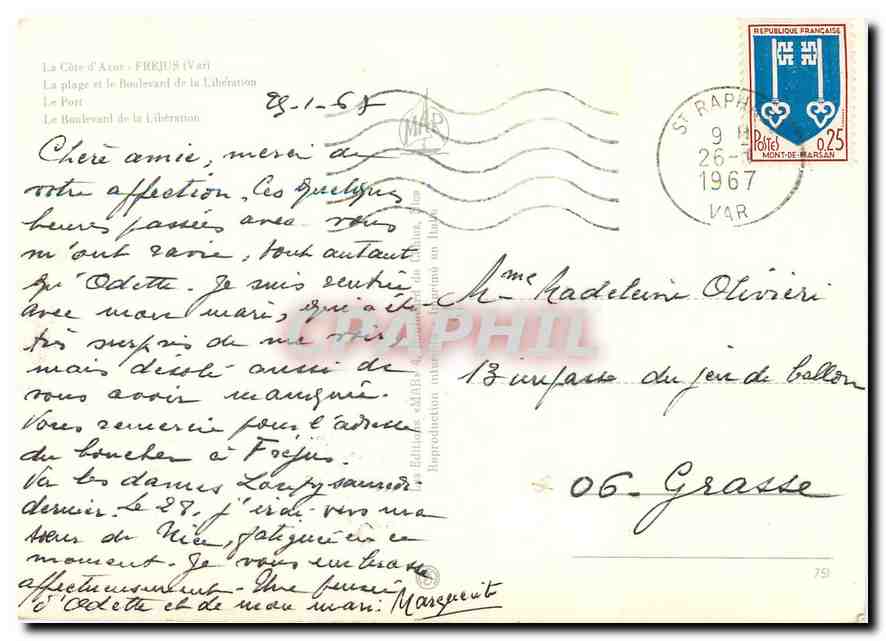 La Côte d'Azur - FREJUS (Var)
La plage et le Boulevard de la Libération
Le Port
Le Boulevard de la Libération
25-1-67
Chère amie, merci de
votre affection. Ces quelques
heures passées avec vous
m'ont ravie, tout autant
qu'Odette. Je suis rentrée
avec mon mari, qui a été
très surpris de me voir,
mais désolé aussi de
vous avoir manquée.
Vous remercie pour l'adresse
du boucher à Fréjus.
Vu les dames samedi
dernier. Le 28, j'irai vers ma
sœur de Nice, fatiguée en ce
moment. Je vous embrasse
affectueusement. Une pensée
d'Odette et de mon mari. Marguerite
MAR
Les Editions «MAR» Nice
Reproduction interdite Imprimé en Italie
CPAPHIL
REPUBLIQUE FRANÇAISE
POSTES 0,25
MONT-DE-MARSAN
ST RAPH
9 H
26-1
1967
VAR
Mme Madeleine Olivieri
13 impasse du jeu de ballon
06 - Grasse
751